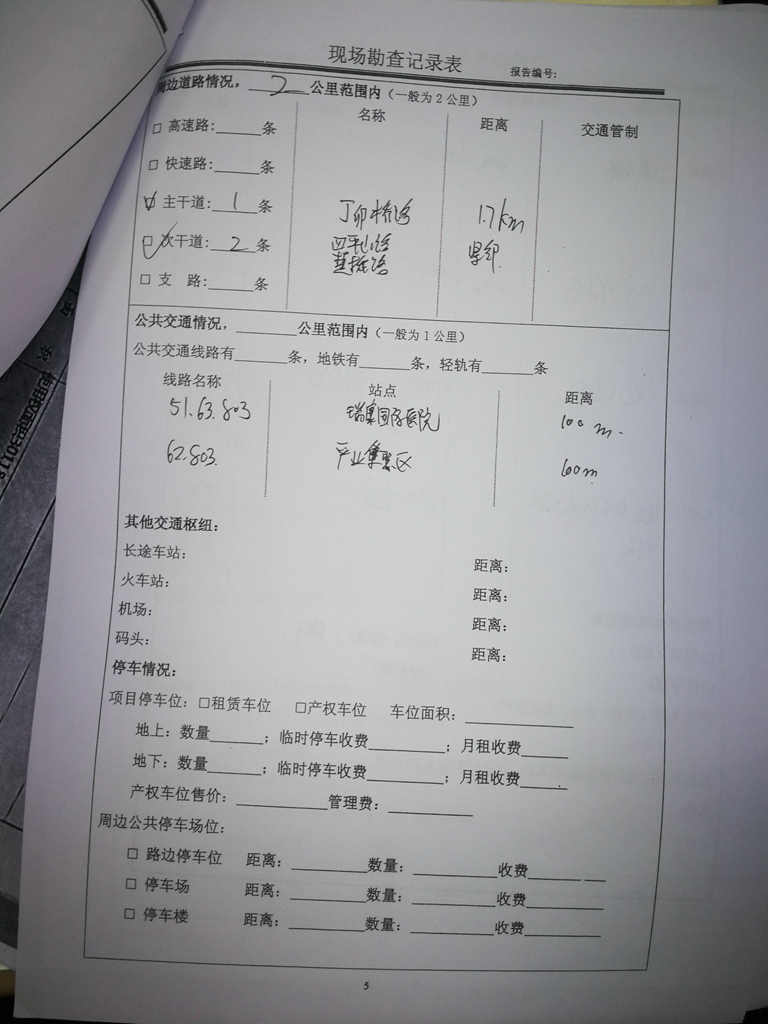 现场勘查记录表
报告编号：
周边道路情况，2公里范围内（一般为2公里）
名称 距离 交通管制
□ 高速路：______条
□ 快速路：______条
☑ 主干道：1条 丁卯桥路 1.7km
☑ 次干道：2条 四平山路 紧邻
□ 支 路：______条
公共交通情况，______公里范围内（一般为1公里）
公共交通线路有______条，地铁有______条，轻轨有______条
线路名称 站点 距离
51.63.803 瑞康国际医院 100m.
62.803. 产业集聚区 60m
其他交通枢纽：
长途车站： 距离：
火车站： 距离：
机场： 距离：
码头： 距离：
停车情况：
项目停车位：□租赁车位 □产权车位 车位面积：____________
地上：数量______；临时停车收费________；月租收费_____
地下：数量______；临时停车收费________；月租收费_____
产权车位售价：__________管理费：__________
周边公共停车场位：
□ 路边停车位 距离：________数量：________收费________
□ 停车场 距离：________数量：________收费________
□ 停车楼 距离：________数量：________收费________
5